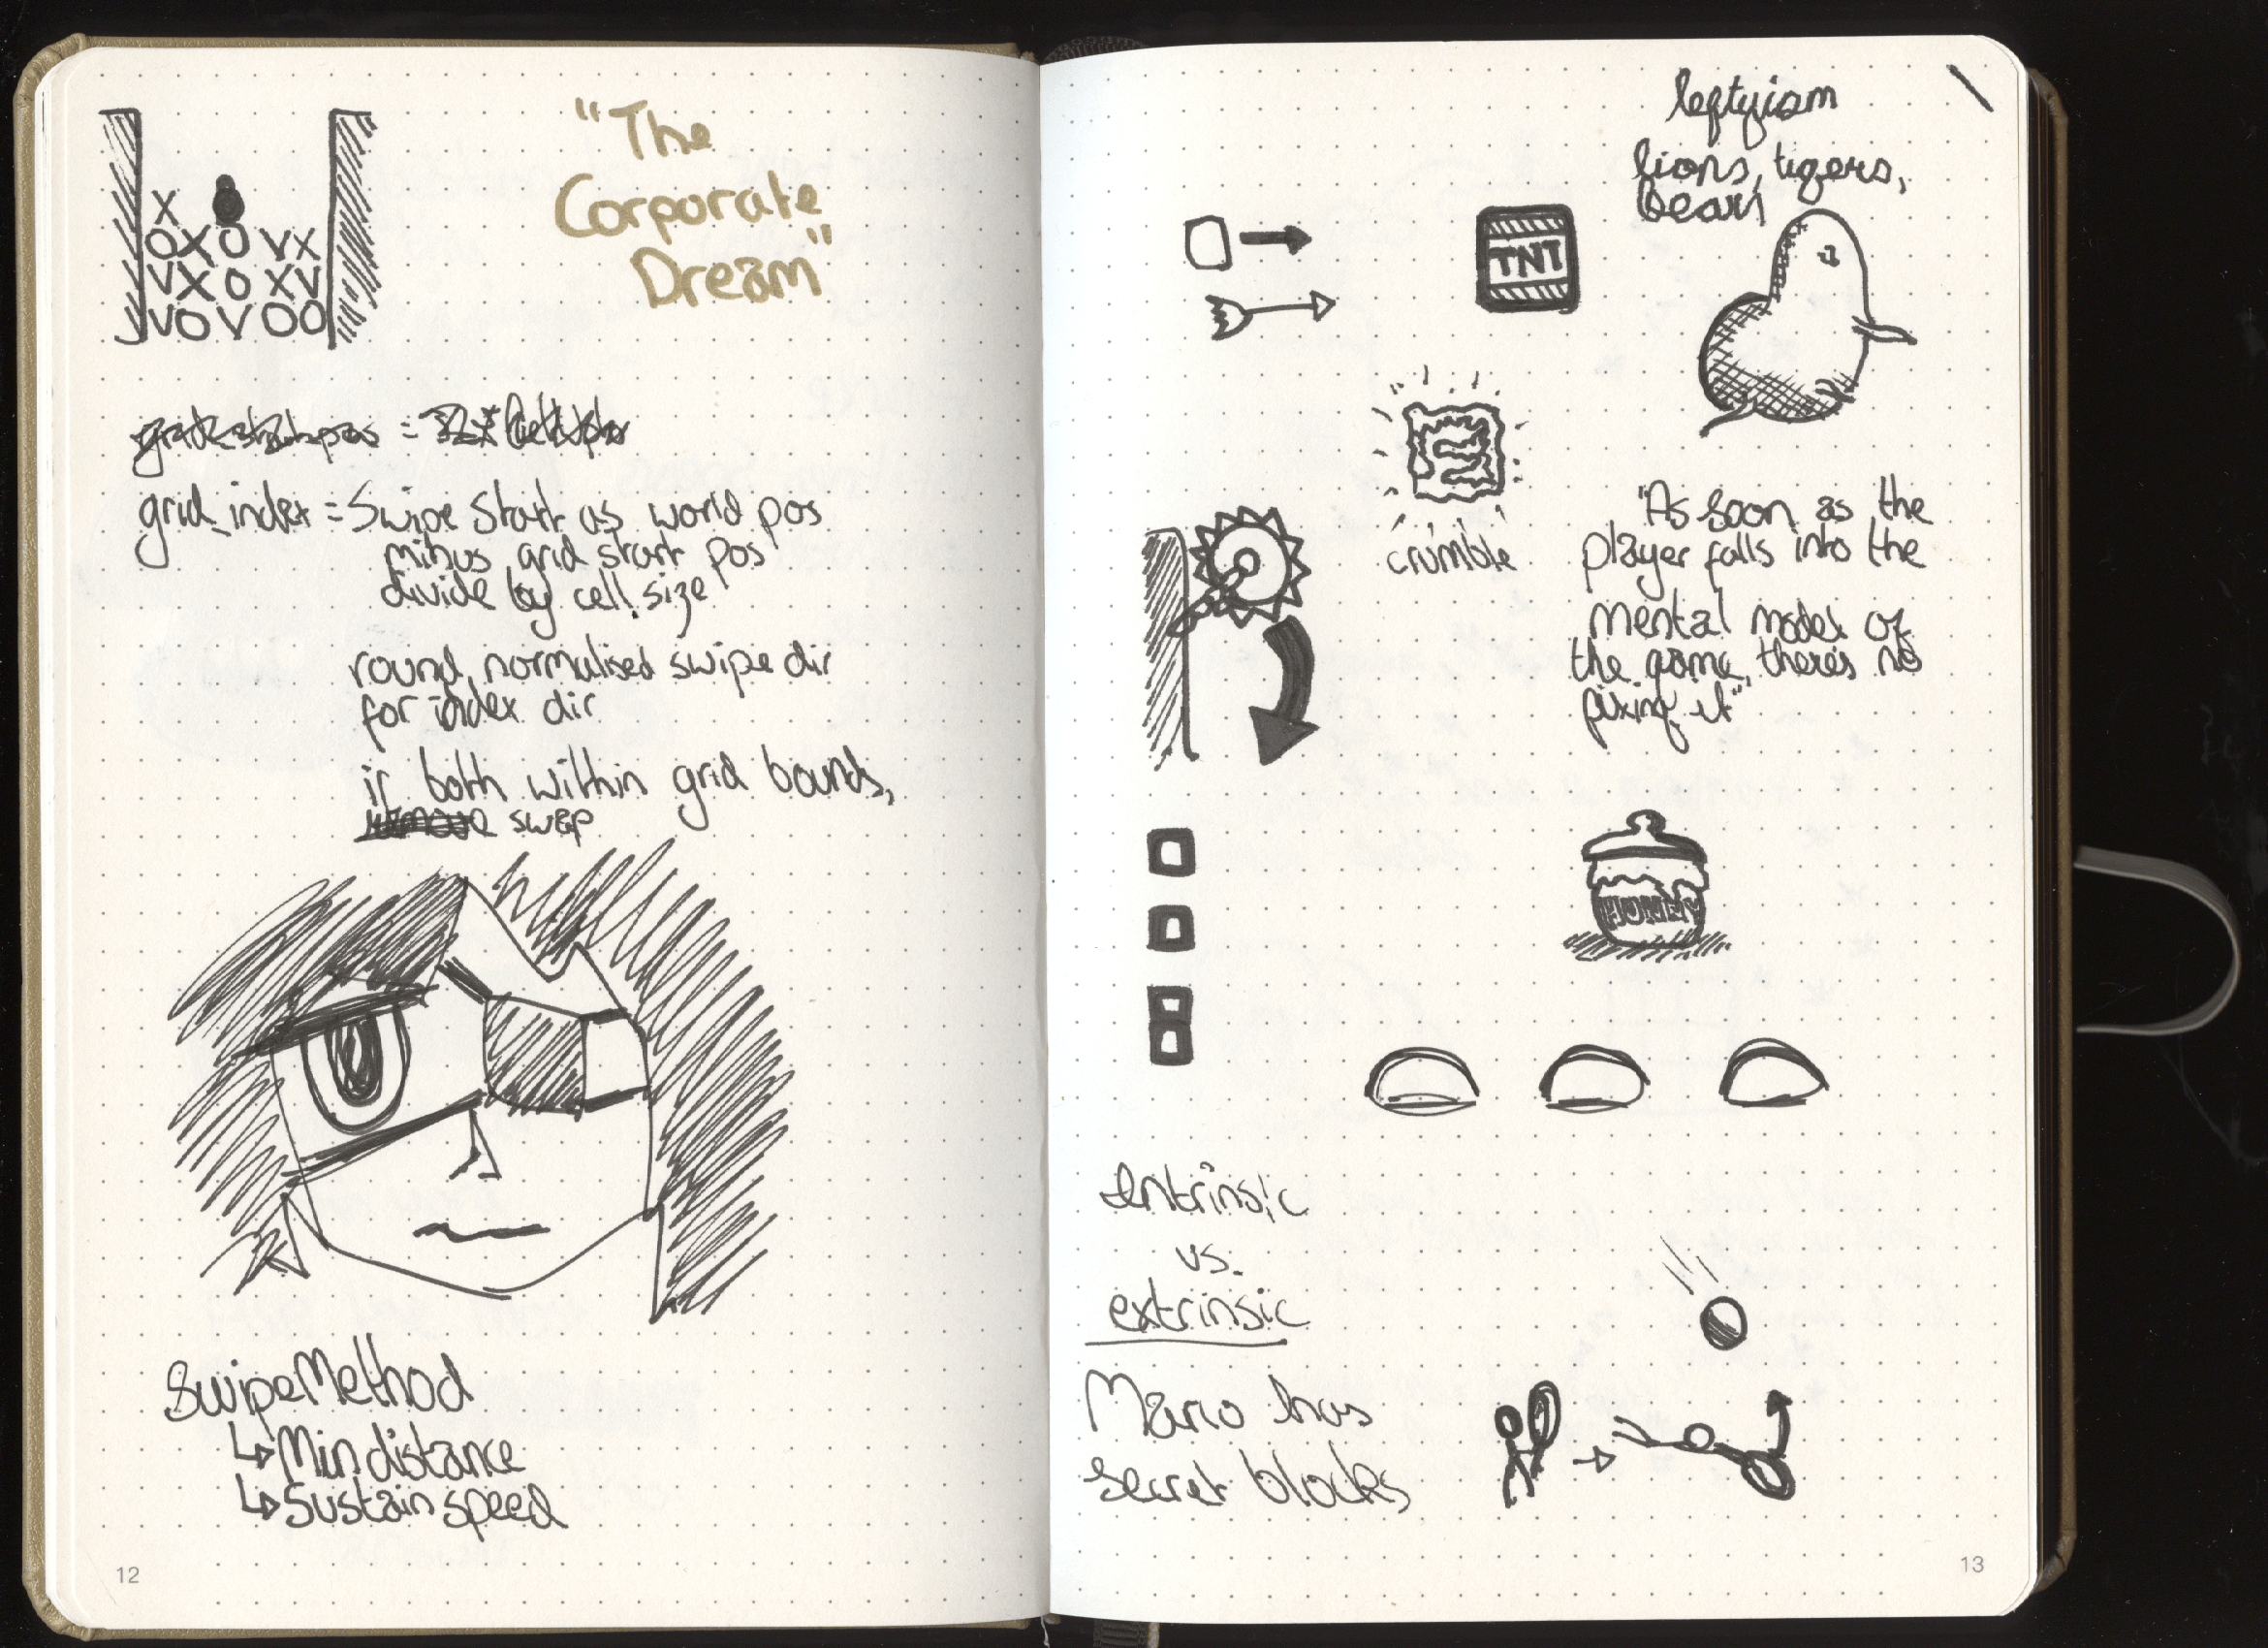 "The
Corporate
Dream"
X
OXO VX
VXO XV
VOVOO
grid_index = Swipe Start as world pos
minus grid start pos
divide by cell size
round, normalised swipe dir
for index dir
if both within grid bounds,
swap
SwipeMethod
↳Min distance
↳Sustain speed
12
leftyism
lions, tigers,
bears
TNT
crumble
"As soon as the
player falls into the
mental model of
the game, there's no
fixing it"
HONEY
intrinsic
vs.
extrinsic
Mario has
secret blocks
13